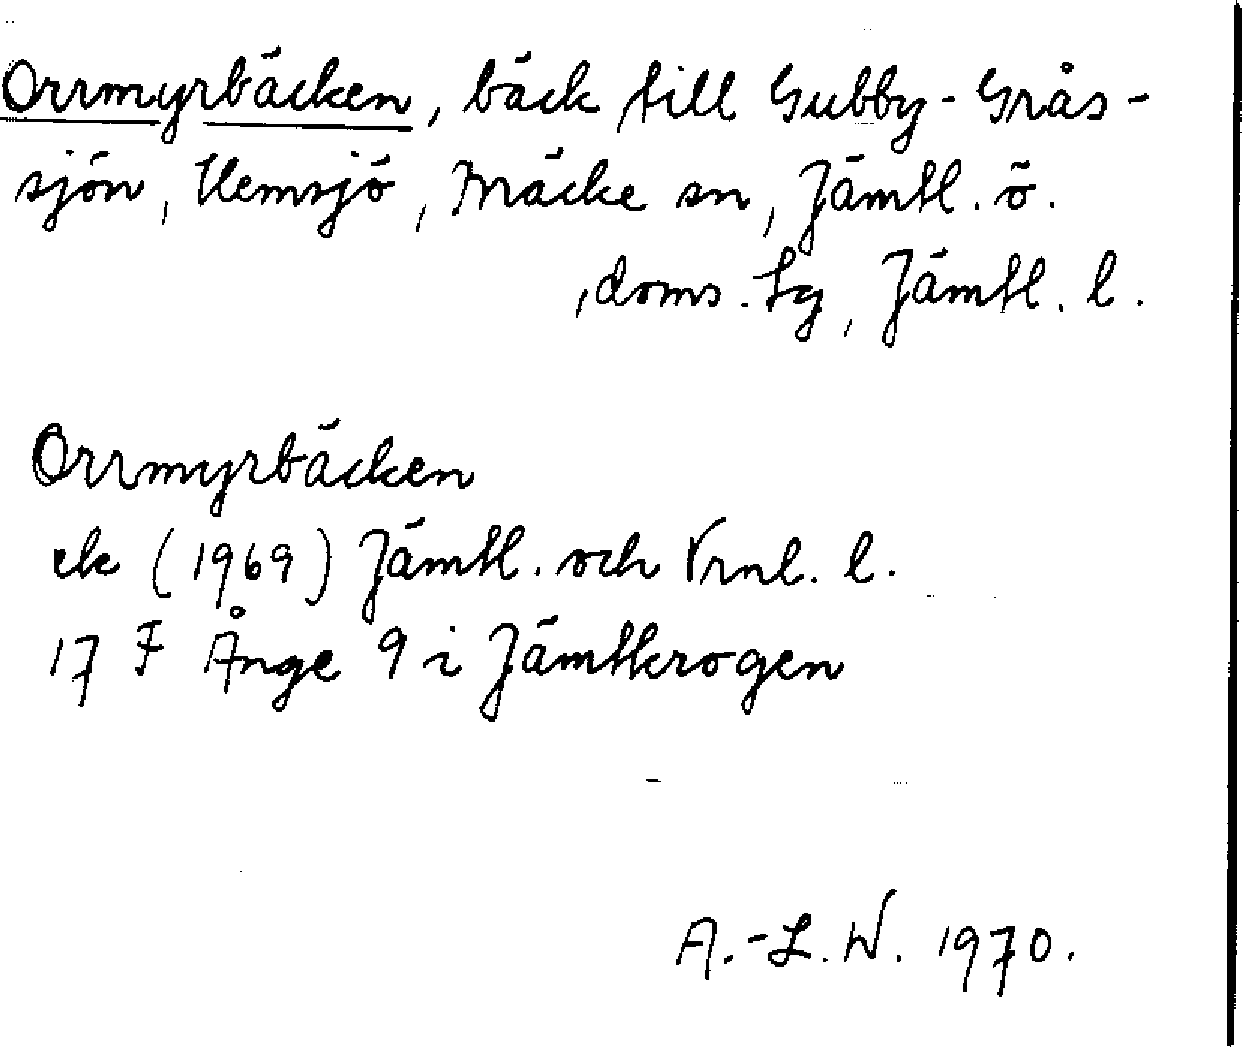 Orrmyrbäcken, bäck till Gubby-Grås-
sjön, Hemsjö, Bräcke sn, Jämtl. ö.
, doms. tg, Jämtl. l.
Orrmyrbäcken
ek (1969) Jämtl. och Vrnl. l.
17 F Ånge 9 i Jämtkrogen
A.-L. W. 1970.